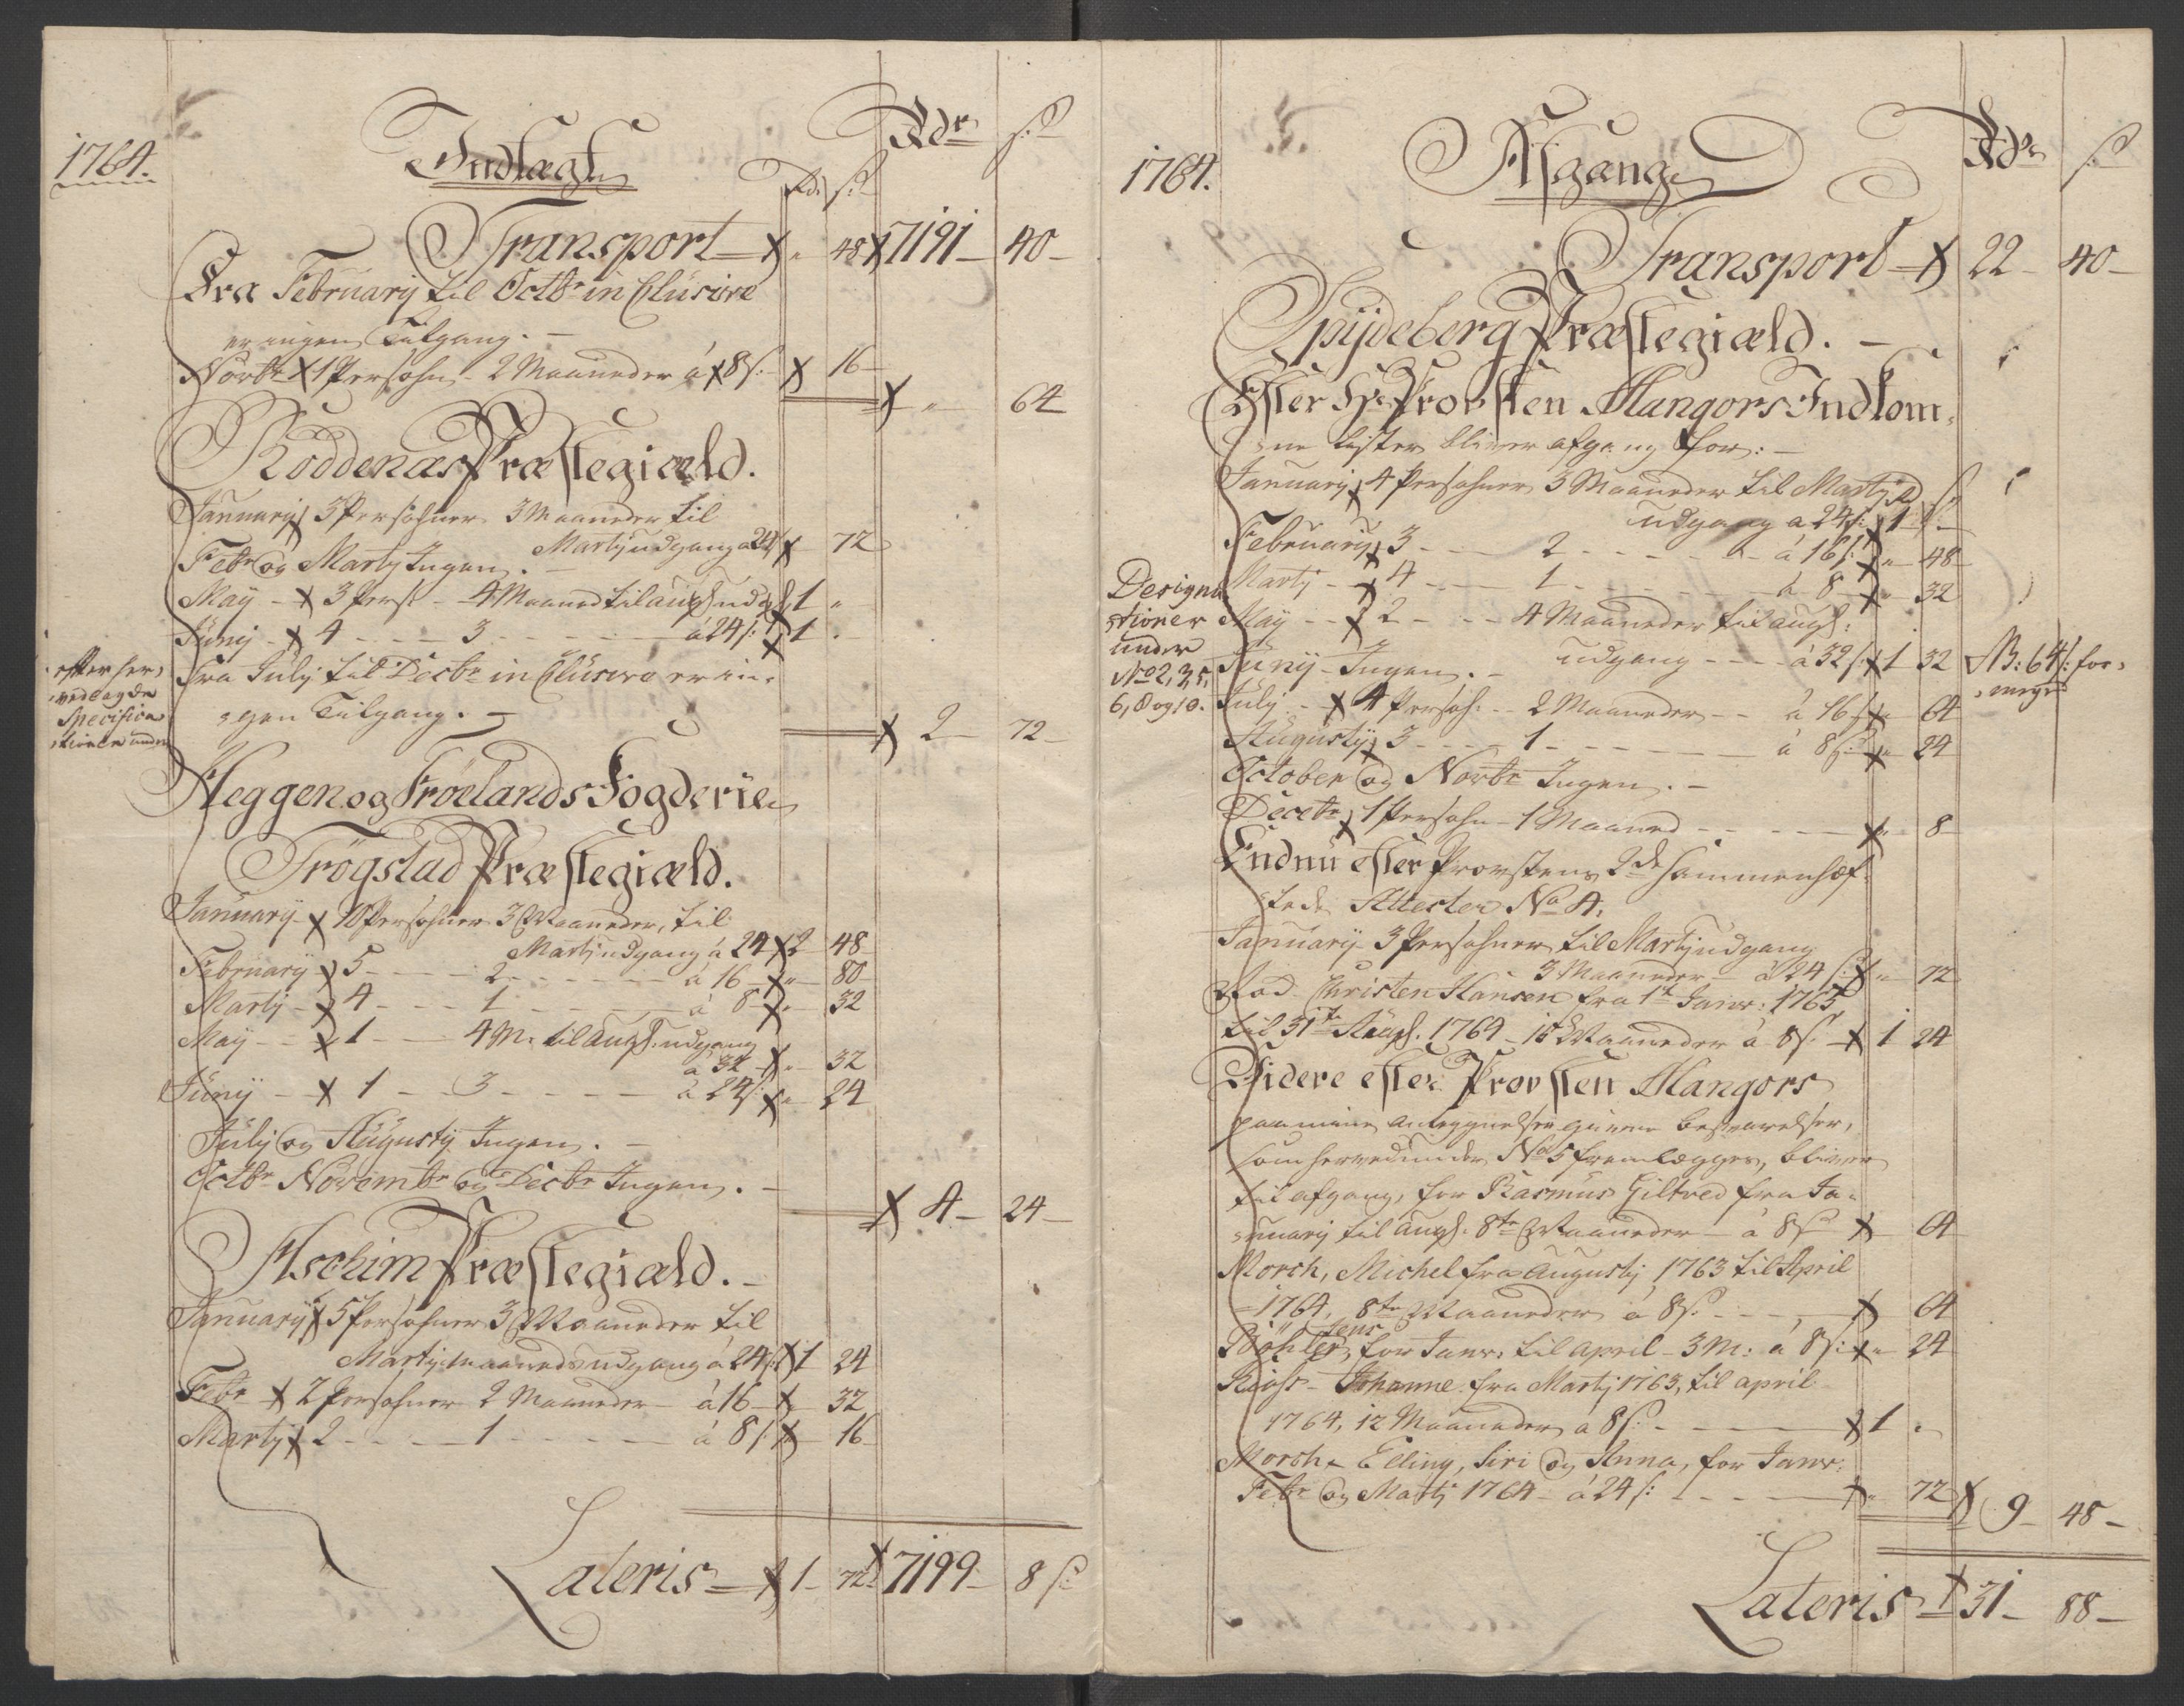 1764.
Indtægt
Rdr ß
Rd. ß
Transport – „ 48 7191 – 40 –
Fra Februarij til Octbr inclusive
er ingen Tilgang. –
Novbr 1 Persohn – 2 Maaneder á 8 ß: 16 –
„ – 64
Röddenæs Præstegiæld.
Januarij 3 Persohner 3 Maaneder til
Martij udgang a 24 72
Febr og Martij Ingen. –
May – 3 Pers: – 4 Maaned til aug: udg: 1 „
Junij – 4 – – – 3 – – – á 24 ß: 1 „
Fra Julij til Decbr inclusive er in-
gen Tilgang. –
2 – 72 –
efter her-
ved lagde
Specifica
tioner under
Heggen og Frölands Fogderie
Trögstad Præstegiæld.
January – 10 Persohner 3 Maaneder, til
Martij udgang á 24 2 – 48 –
February 5 – – – 2 – – – á 16 – „ – 80 –
Martij – 4 – – – 1 – – – á 8 – „ – 32
May – – 1 – – 4 M: til Aug: udgang
á 32 – „ – 32
Junij – 1 – – 3 – – – á 24 ß: „ – 24
Julij og Augustij Ingen. –
Octbr Novembr og Decbr Ingen. –
4 – 24 –
Aschim Præstegiæld. –
January 5 Persohner 3 Maaneder til
Martij Maaneds udgang á 24 ß: 1 24
Febr 2 Persohner 2 Maaneder – á 16 – 32
Martij 2 – – – 1 – – – á 8 ß 16 –
Lateris – 1 – 72 7199 – 8 ß
1764.
Afgang
Rdr ß
Transport – 22 – 40 –
Spydeberg Præstegiæld. –
Efter Hr Provsten Mangors Indkom-
ne Lister bliver afgang for: –
January 4 Persohner 3 Maaneder til Martij
udgang a 24 ß: 1 „ –
February 3 – – – 2 – – – á 16 ß: „ – 48 –
Martij – 4 – – – 1 – – – á 8 – „ 32
May – – 2 – – – 4 Maaneder til aug:
udgang – – – á 32 ß 1 32
Designa
tioner
under
No 2, 3, 5,
6, 8 og 10.
NB: 64 ß: for-
meget
Junij – Ingen. –
July – 4 Persoh: – – 2 Maaneder – – á 16 ß „ – 64
Augusty 3 – – – 1 – – – á 8 ß: „ – 24
October og Novbr Ingen. –
Decebr 1 Persohn – 1 Maaned – – – – „ 8
Endnu efter Provstens 2de sammenhæf-
tede Attester No 4.
January 3 Persohner til Martij udgang
3 Maaneder – á 24 ß: „ – 72
Christen Hansen fra 1te Janr: 1763
til 31te Aug: 1764 – 15 Maaneder á 8 ß. – 1 24
Videre efter Provsten Mangors
paa mine Antegnelser givne besvarelser,
som herved under No 5 fremlægges, bliver
til afgang, for Rasmus Giltved fra Ja-
nuarij til Aug: 8te Maaneder – á 8 ß 64
Morch, Michel fra Augustij 1763 til April
1764, 8te Maaneder á 8 ß. – – – 64
Böhler, Jens for Janr: til April – 3 M: á 8 ß: „ – 24
Johanne fra Martij 1763, til april
1764, 12 Maaneder á 8 ß: – – – 1 „
Morch – Elling, Siri og Anna, for Janr:
Febr og Martj 1764 – á 24 ß: – – – „ 72 9 – 48 –
Lateris – 31 – 88 –